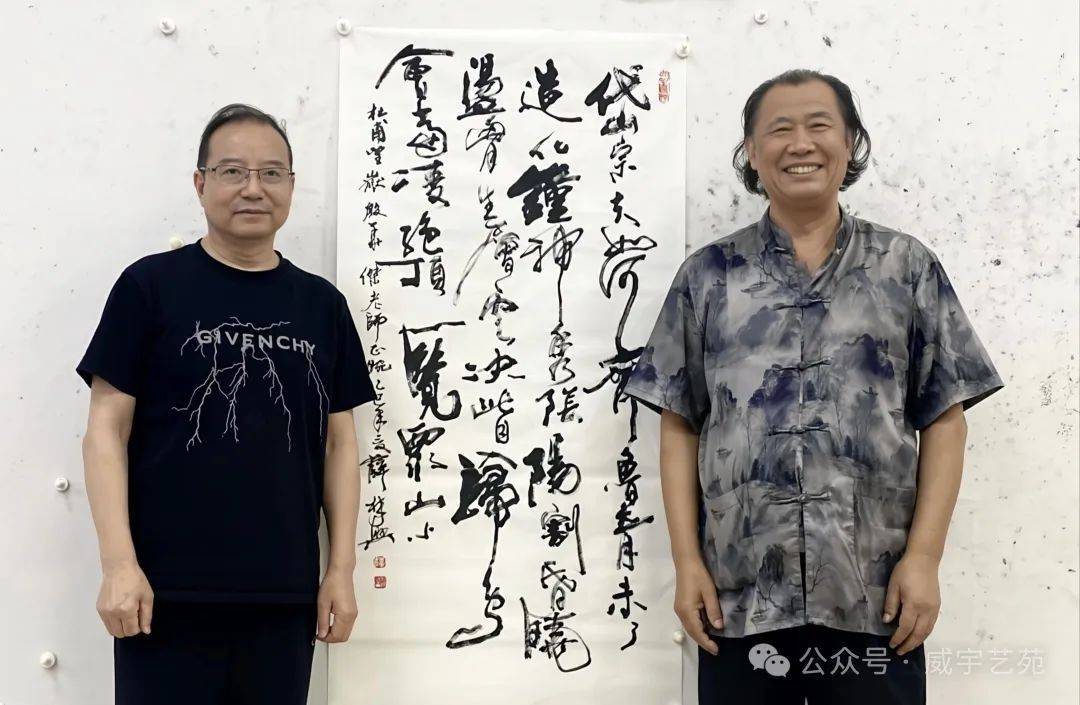 岱宗夫如何齊魯青未了
造化鐘神秀陰陽割昏曉
盪胸生層雲決眥入歸鳥
會當凌絕頂一覽眾山小
杜甫望嶽 老師正腕乙巳年夏薛林興
GIVENCHY
公众号·威宇艺苑